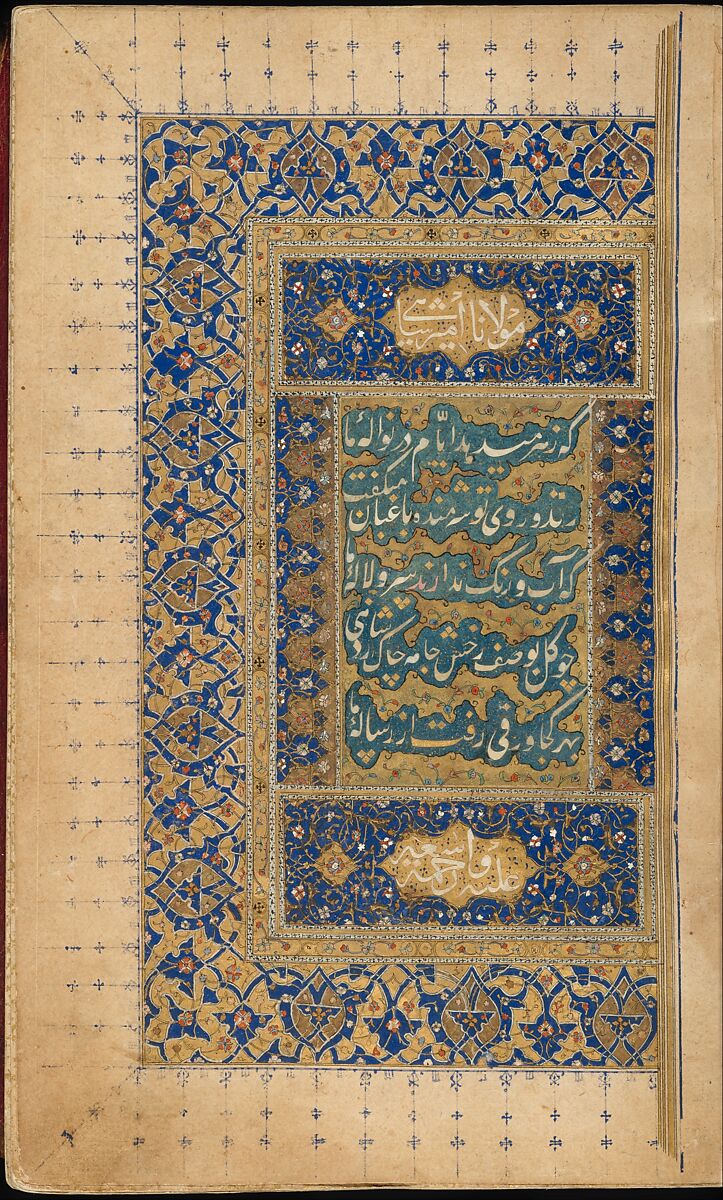 مولانا امیر شاهی
که زهر میدهد ایّام در نواله ما
ز قد و روی تو شرمنده باغبان میگفت
که آب و رنگ ندارند سرو و لاله ما
چو گل بوصف رخش جامه چاک زد شاهی
بهر کجا ورقی رفت از رساله ما
علیه رحمة واسعه